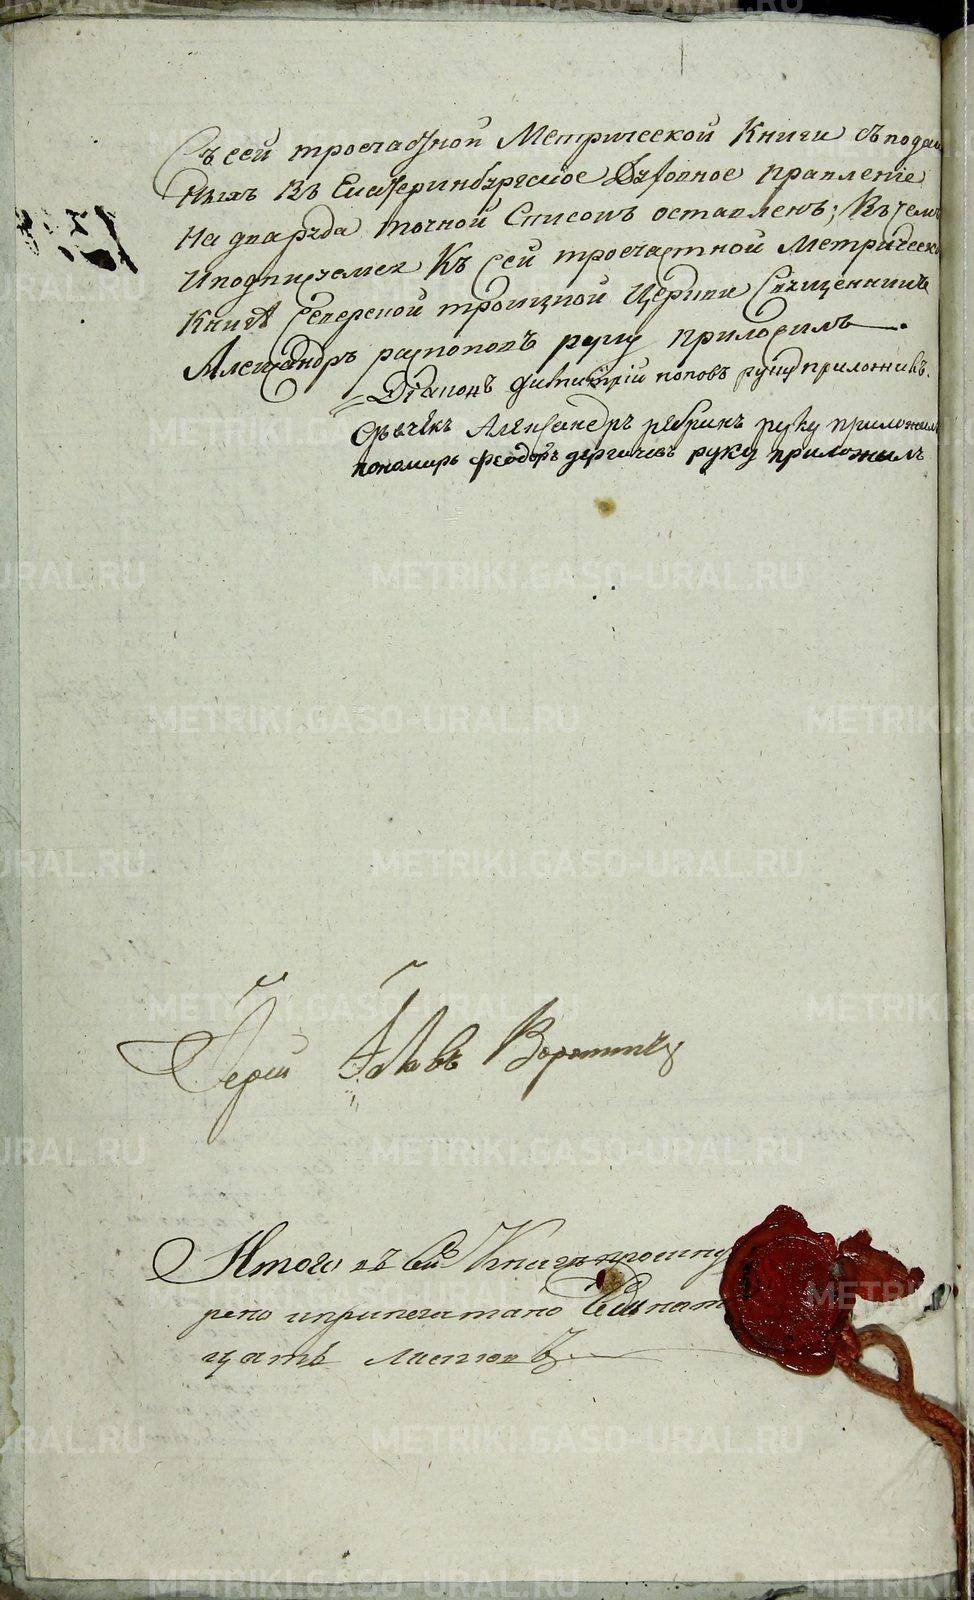 Съ сей троечастной Метрической Книги съ подан
ныхъ Въ Екатеринбургское Духовное правленіе
На два рѣда точной Списокъ оставленъ; Въ чемъ
И подпиземся Къ Сей троечастной Метрическо
Книгѣ Северской троицкой Церкви Священникъ
Александръ распоповъ руку приложилъ
Діаконъ Димитрій поповъ руку приложилъ.
Дьячекъ Александръ рябкинъ руку приложилъ
пономарь феодоръ дергачевъ руку приложылъ
Иерей Іаковъ
Итого въ сей Книгѣ прошну
рено и припечатано Единат
цать листовъ
METRIKI.GASO-URAL.RU